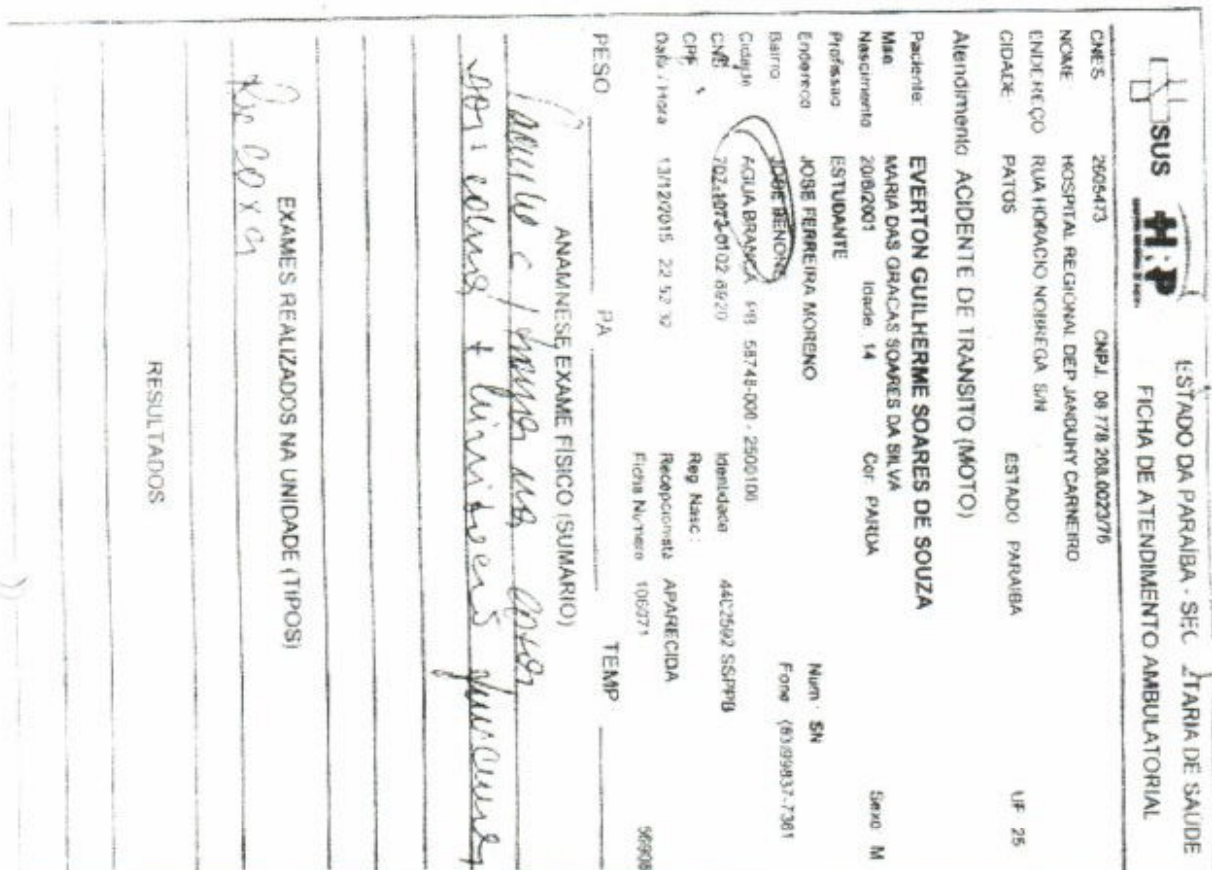 SUS HRP
ESTADO DA PARAÍBA - SEC TARIA DE SAUDE
FICHA DE ATENDIMENTO AMBULATORIAL
CNES 2605473 CNPJ. 08 778 268.0023/76
NOME HOSPITAL REGIONAL DEP JANDUHY CARNEIRO
ENDEREÇO RUA HORACIO NOBREGA S/N
CIDADE PATOS ESTADO PARAIBA UF 25
Atendimento ACIDENTE DE TRANSITO (MOTO)
Paciente: EVERTON GUILHERME SOARES DE SOUZA
Mae MARIA DAS GRACAS SOARES DA SILVA
Nascimento 20/8/2001 Idade 14 Cor PARDA Sexo M
Profissao ESTUDANTE
Endereco JOSE FERREIRA MORENO Num SN
Bairro JOSE Fone (83)99837-7361
Cidade AGUA BRANCA PB 58748-000 - 2500106
CNS 702-1073-0102 8920 Identidade SSPPB
CPF Reg Nasc :
Data / Hora 13/12/2015 22 52 32 Recepcionista APARECIDA
Ficha Numero 106071
PESO PA TEMP
ANAMNESE EXAME FÍSICO (SUMÁRIO)
EXAMES REALIZADOS NA UNIDADE (TIPOS)
Rx coxa
RESULTADOS